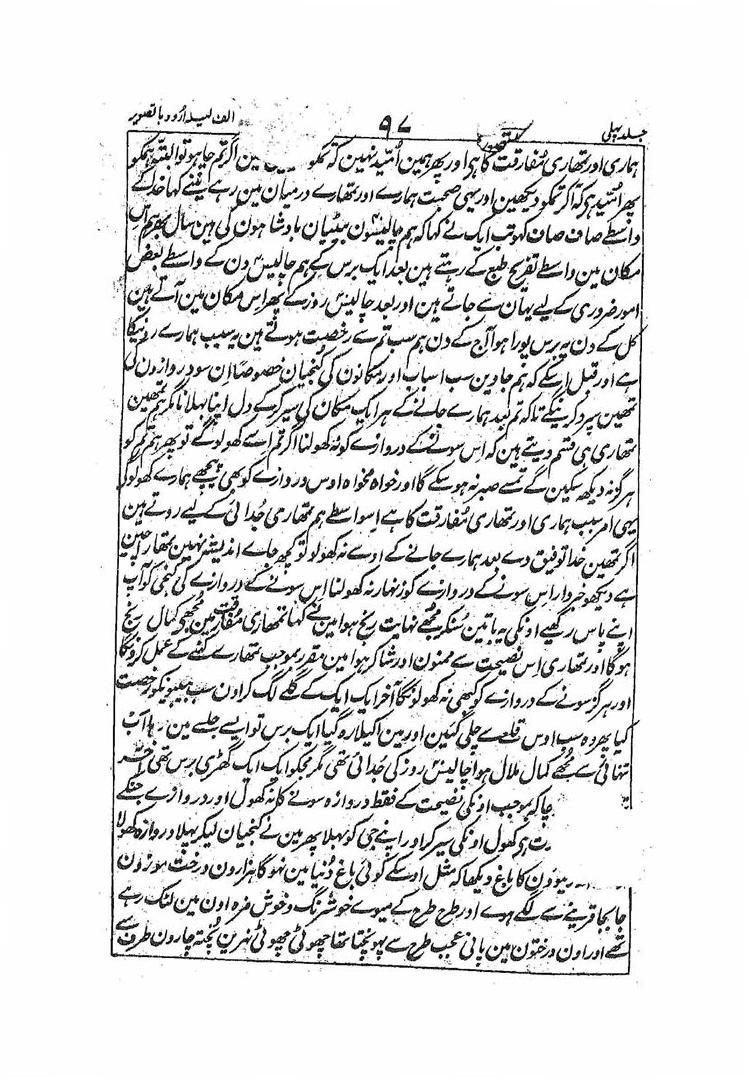 جلد پہلی ۹۷ الف لیلہ اردو با تصویر
ہماری اور تمھاری مفارقت کا ہو اور پھر ہمین اُمّید نہین کہ تمکو مین اگر تم چاہو تو البتہ ہمکو
پھر اُمّید ہو کہ اگر تمکو دیکھین اور یہی صحبت ہمارے اور تمھارے درمیان مین رہے مینے کہا خدا کے
واسطے صاف صاف کہو تب ایک نے کہا کہ ہم چالیسون بیٹیان بادشاہون کی ہین سال بھر ہم اس
مکان مین واسطے تفریح طبع کے رہتے ہین بعد ایک برس کے ہم چالیس دن کے واسطے بعض
امور ضروری کے لیے یہان سے جاتے ہین اور بعد چالیس روز کے پھر اس مکان مین آتے ہین
کل کے دن یہ برس پورا ہوا آج کے دن ہم سب تم سے رخصت ہوتے ہین یہ سبب ہمارے رونیکا
ہے اور قبل اسکے کہ ہم جاوین سب اسباب اور مکانون کی کنجیان خصوصاً ان سو دروازون کی
تمھین سپرد کرینگے تاکہ تم بعد ہمارے جانے کے ہر ایک مکان کی سیر کر کے دل اپنا بہلانا مگر ہم تمھین
تمھاری ہی قسم دیتے ہین کہ اس سونے کے دروازے کو نہ کھولنا اگر تم اسے کھولو گے تو پھر ہم تمکو
ہرگز نہ دیکھ سکین گے تمسے صبر نہ ہو سکے گا اور خواہ مخواہ اوس دروازے کو بھی پیچھے ہمارے کھولوگے
یہی امر سبب ہماری اور تمھاری مفارقت کا ہے اسواسطے ہم تمھاری جُدائی کے لیے روتے ہین
اگر تمھین خدا توفیق دے بعد ہمارے جانے کے اوسے نہ کھولو تو کچھ جاے اندیشہ نہین تمھارا چین
ہے دیکھو خبردار اس سونے کے دروازے کو زنہار نہ کھولنا اس سونے کے دروازے کی کنجی کو آپ
اپنے پاس رکھیے اونکی یہ باتین سُنکر مجھے نہایت رنج ہوا مین نے کہا تمھاری مفارقت مین مجھکو کمال رنج
ہوگا اور تمھاری اس نصیحت سے ممنون اور شاکر ہوا مین مقرر بموجب تمھارے کہنے کے عمل کرونگا
اور ہرگز سونے کے دروازے کو کبھی نہ کھولونگا آخر ایک ایک کے گلے لگ کر اون سب کو رخصت
کیا پھر وہ سب اوس قلعے سے چلی گئین اور مین اکیلا رہ گیا ایک برس تو ایسے جلسے مین رہا اب
تنہائی سے مجھے کمال ملال ہوا چالیس روز کی جُدائی تھی مگر مجکو ایک ایک گھڑی برس تھی آخر
چاکہ بموجب اونکی نصیحت کے فقط دروازہ سونے کا نہ کھول اور دروازے جنکے
ہو کھول اونکی سیر کر اور اپنے جی کو بہلا پھر مین نے کنجیان لیکر پہلا دروازہ کھولا
میوون کا باغ دیکھا کہ مثل اوسکے کوئی باغ دُنیا مین نہو گا ہزارون درخت موزون
جابجا قرینے سے لگے ہوے اور طرح طرح کے میوے خوشرنگ و خوش مزہ اون مین لٹک رہے
تھے اور اون درختون مین پانی عجب طرح سے پہونچتا تھا چھوٹی چھوٹی نہرین پختہ چارون طرف سے